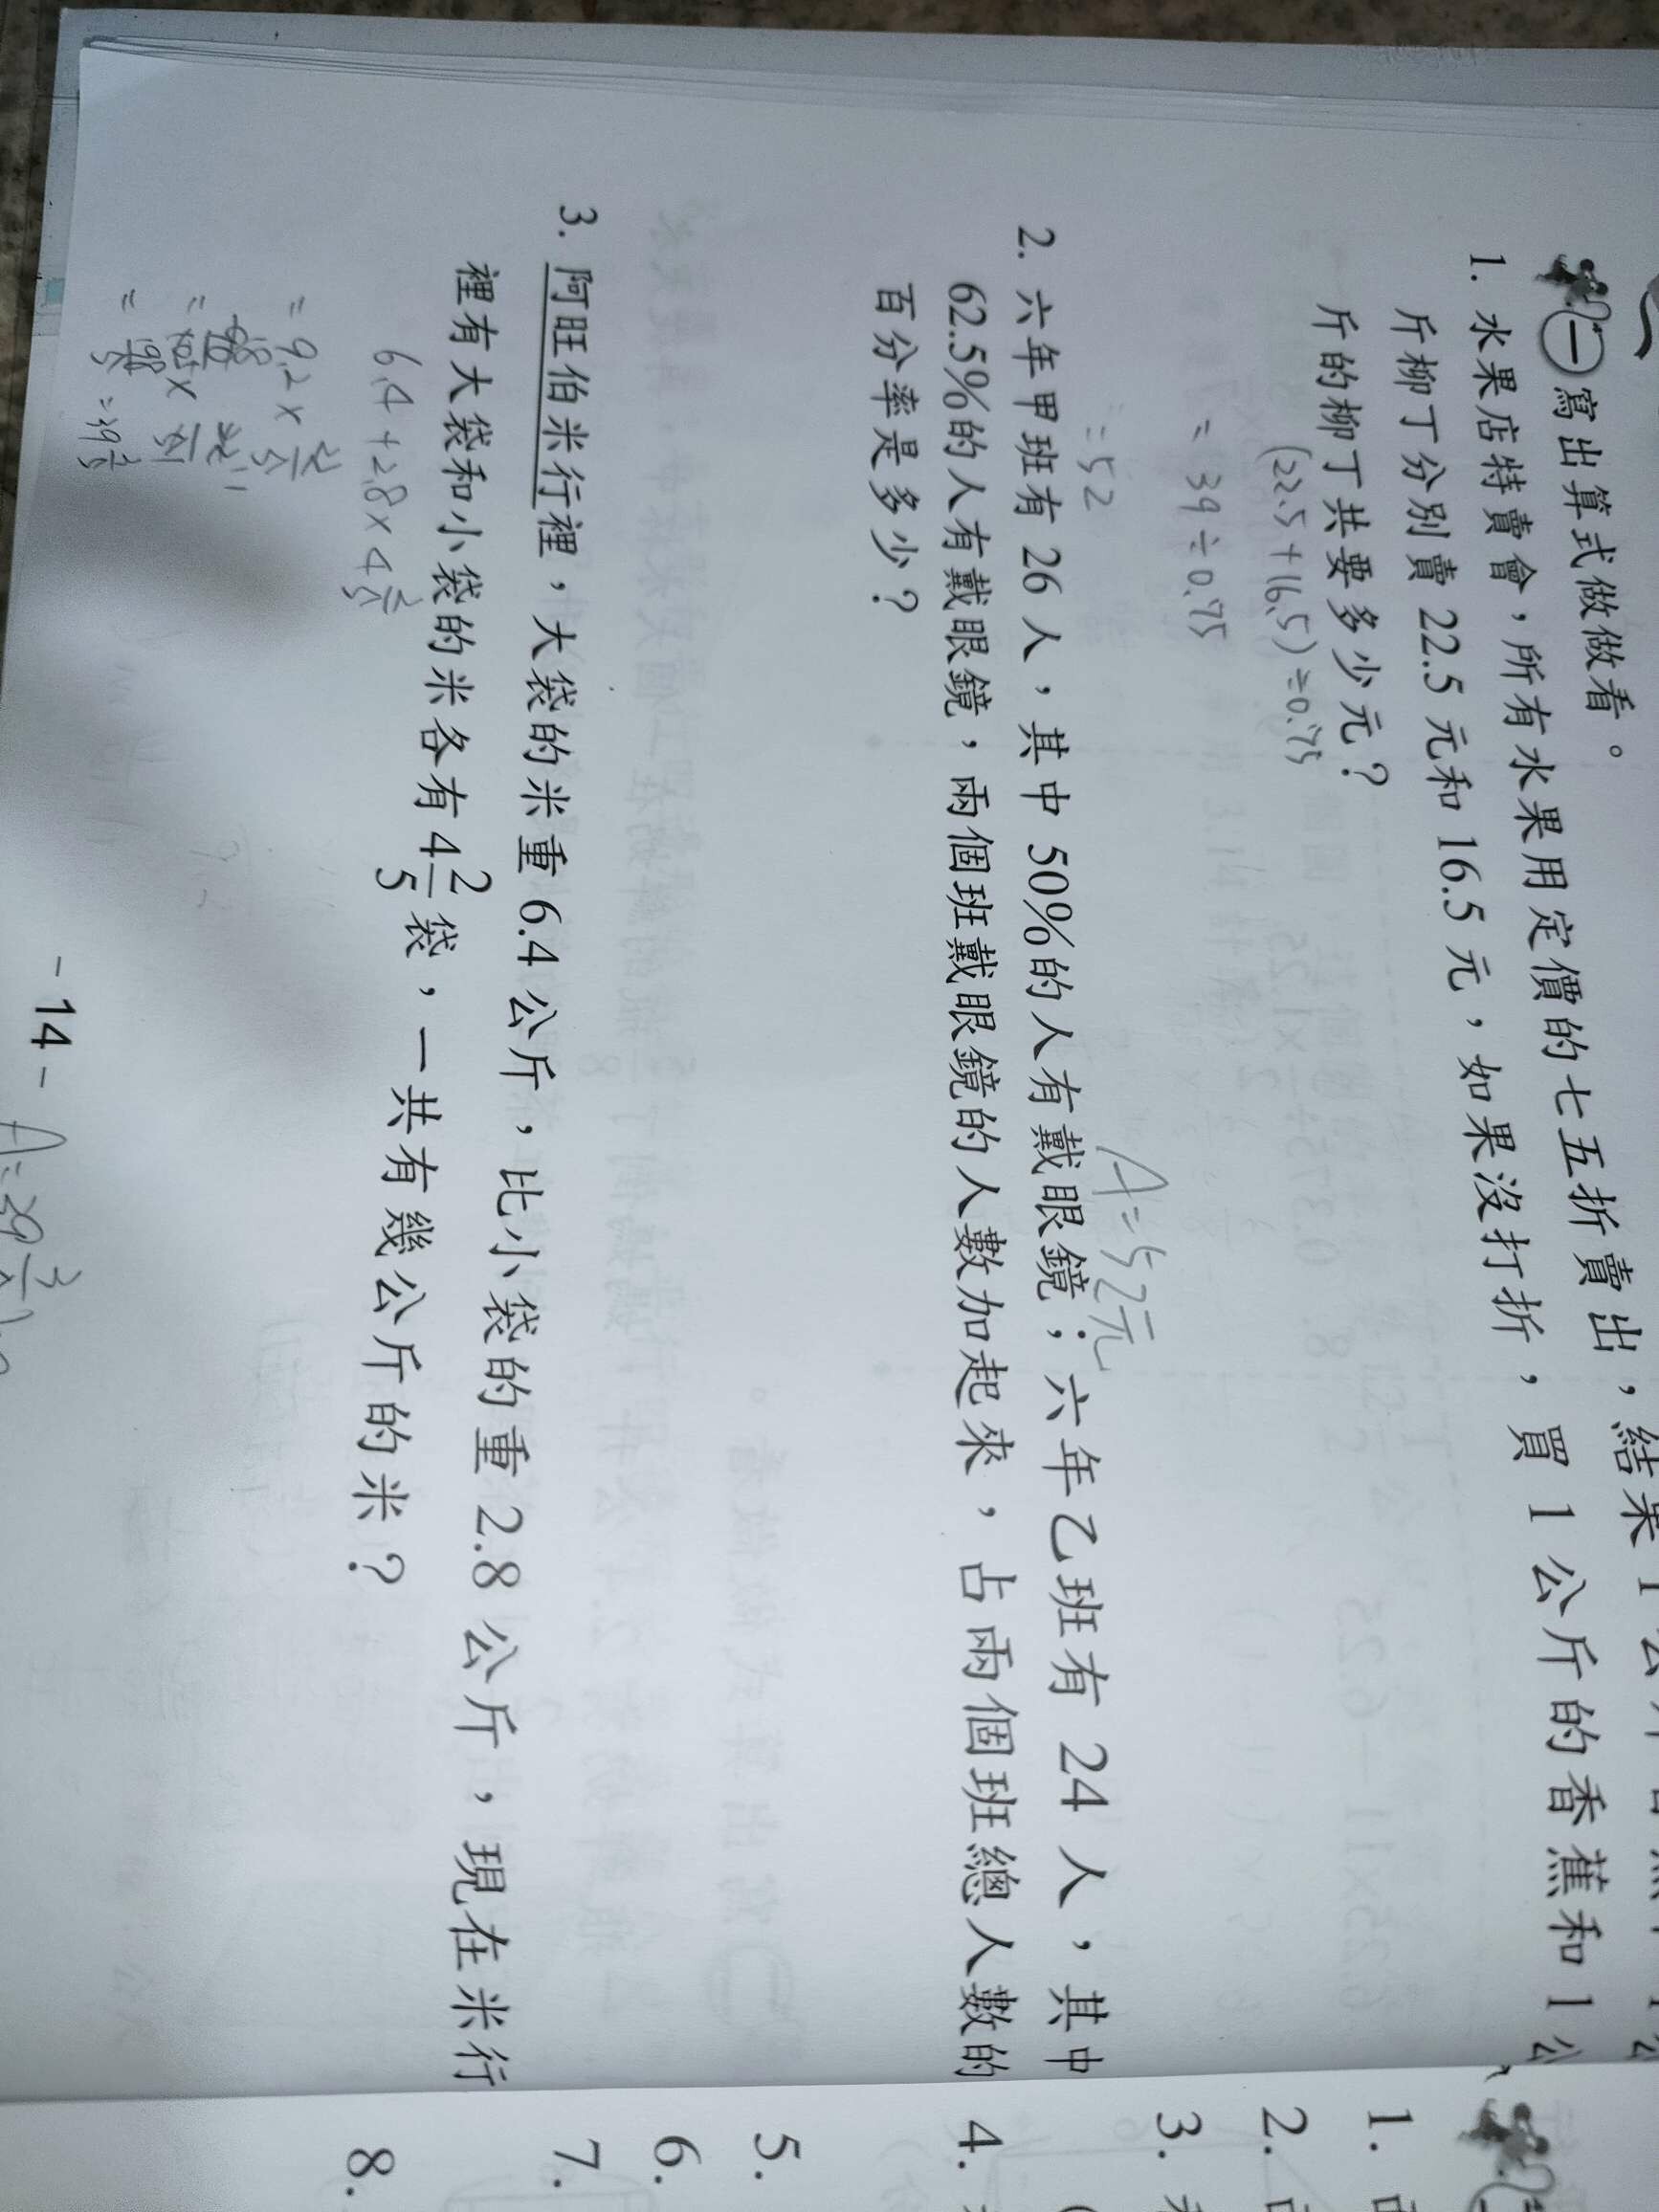 一 寫出算式做做看。
1. 水果店特賣會，所有水果用定價的七五折賣出，結果1公
斤柳丁分別賣 22.5 元和 16.5 元，如果沒打折，買 1 公斤的香蕉和 1 公
斤的柳丁共要多少元？
(22.5+16.5)÷0.75
=39÷0.75
=52
A=52元
2. 六年甲班有 26 人，其中 50%的人有戴眼鏡；六年乙班有 24 人，其中
62.5%的人有戴眼鏡，兩個班戴眼鏡的人數加起來，占兩個班總人數的
百分率是多少？
3. 阿旺伯米行裡，大袋的米重 6.4 公斤，比小袋的重 2.8 公斤，現在米行
裡有大袋和小袋的米各有 4 2/5 袋，一共有幾公斤的米？
6.4+2.8×4 2/5
=9.2×
=
=
- 14 -
1.
2.
3.
4.
5.
6.
7.
8.